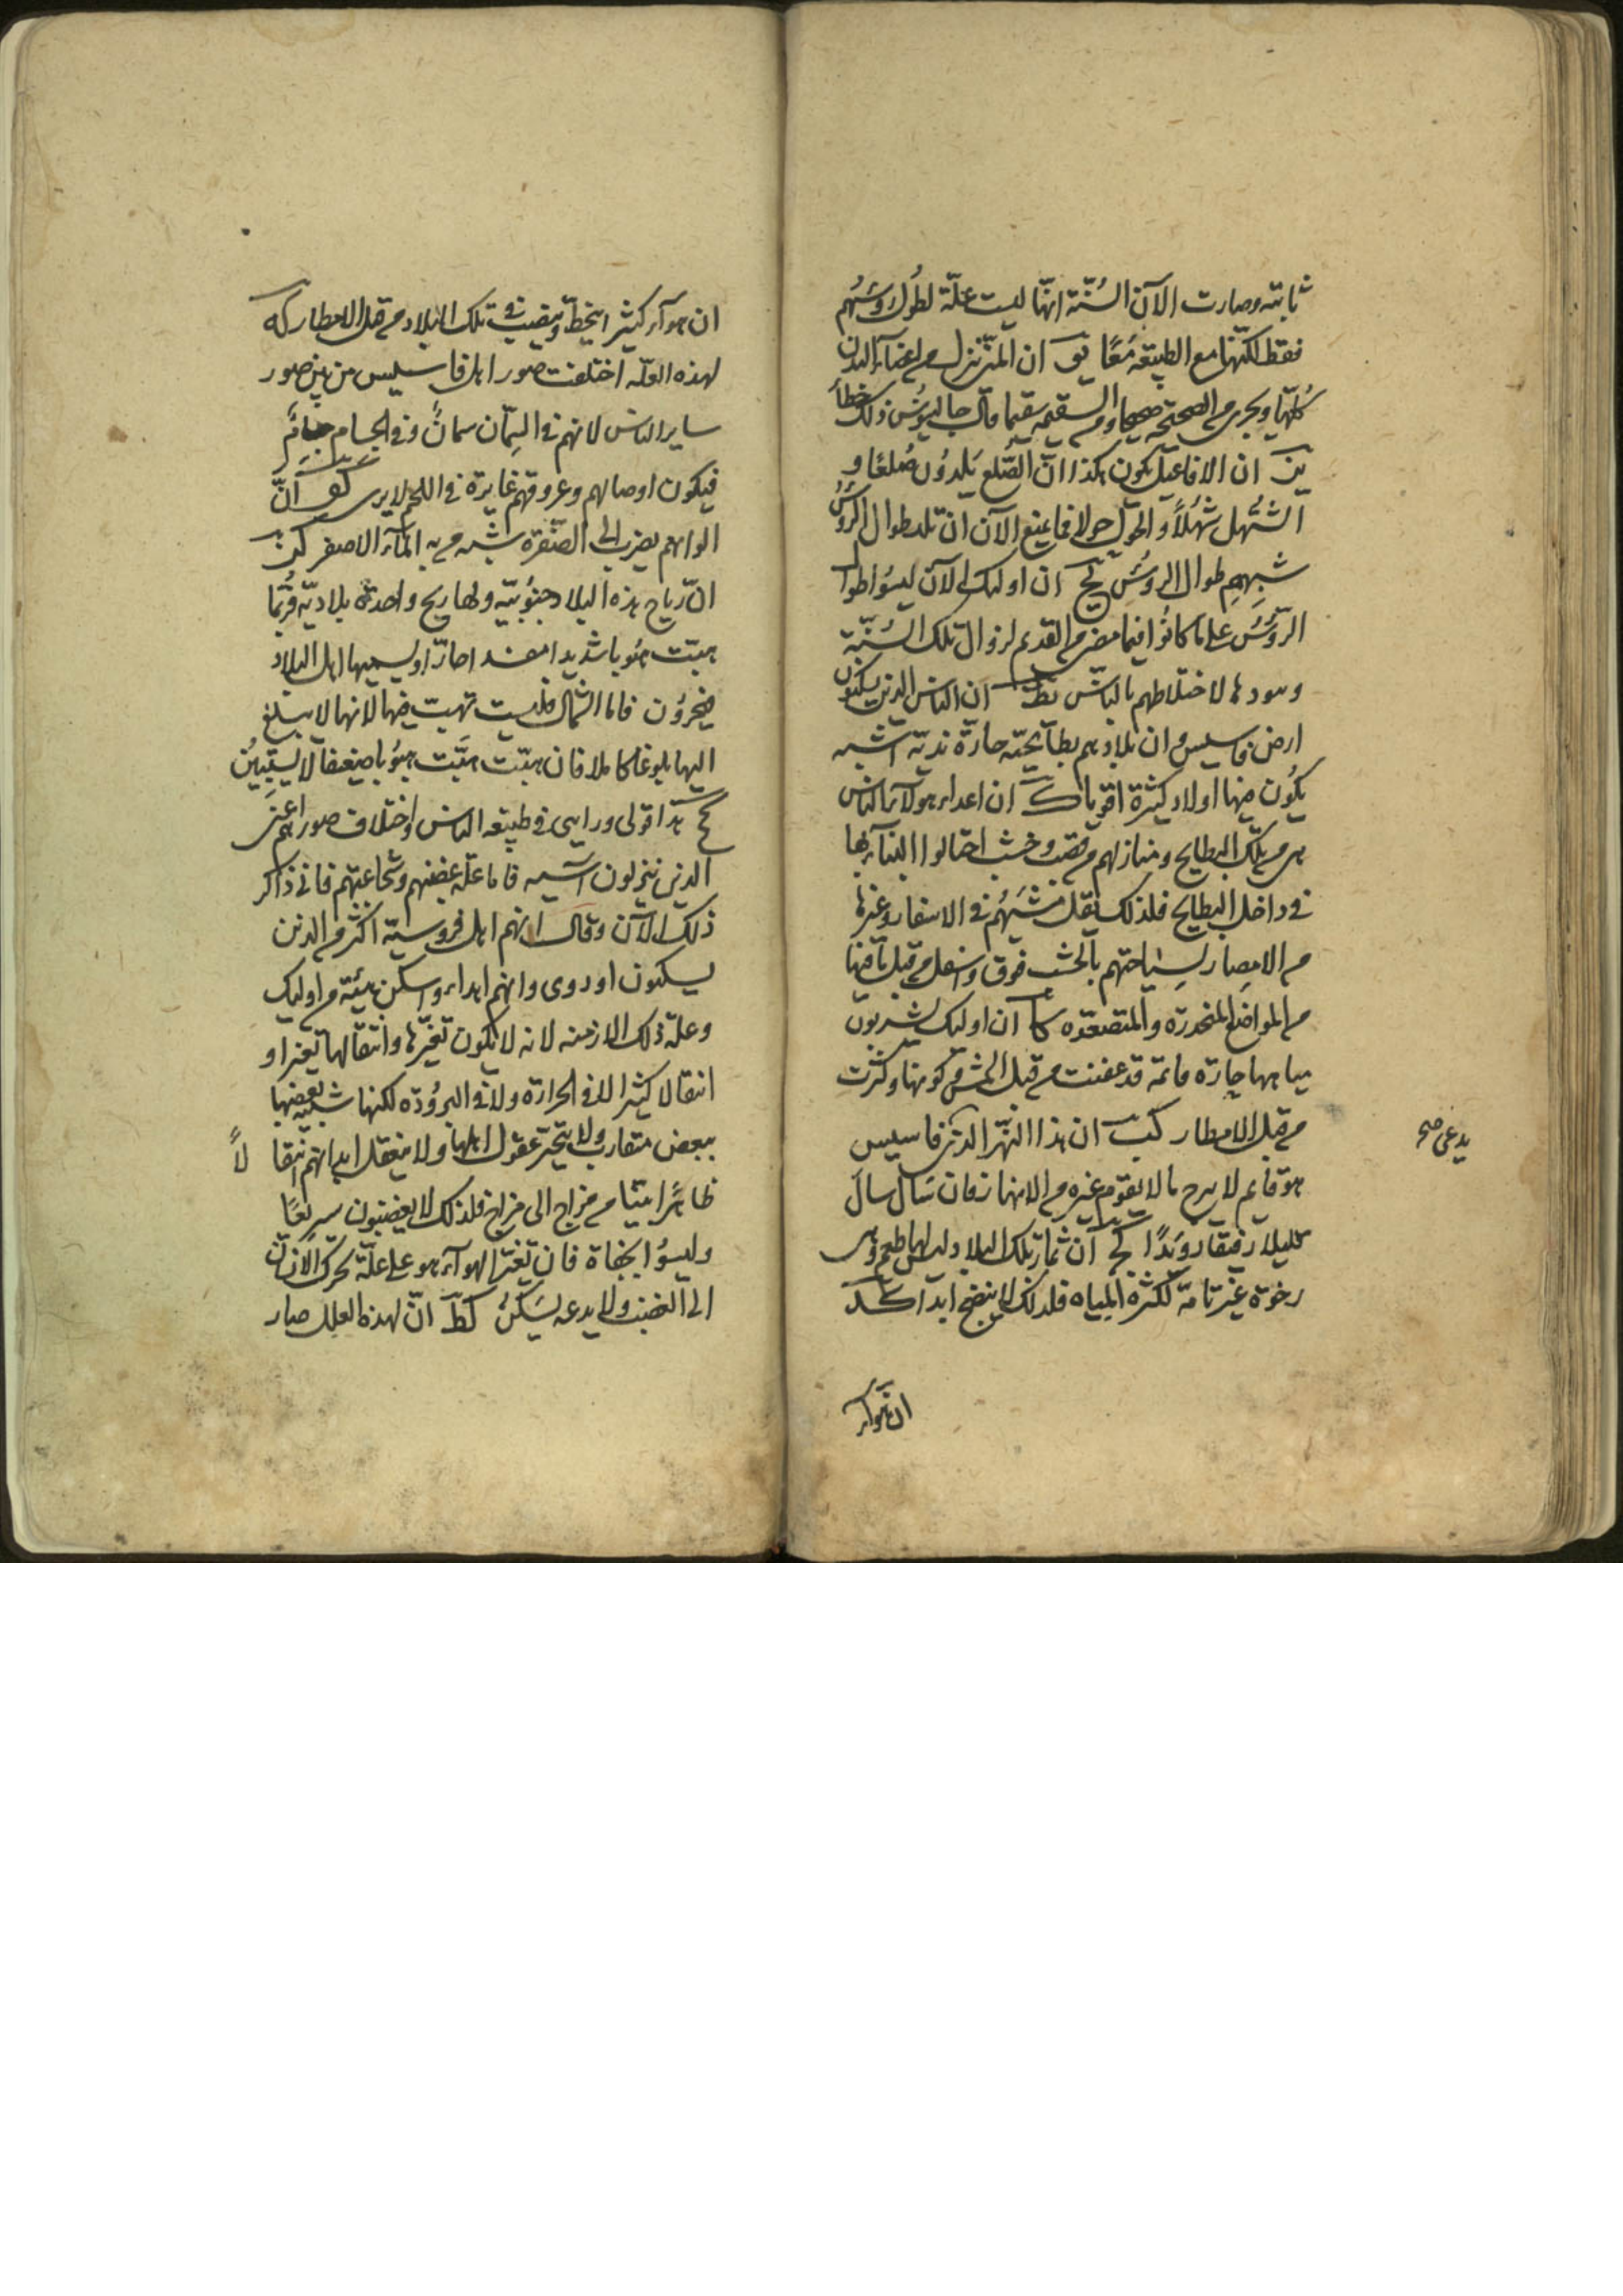 ثابتة وصارت الآن السُنّة انهّا ليست علّة لطُول روُسَهُم
فقط لكنّها مع الطبيعة مَعًا يو ان المنّى ينزل من اعضآء البدن
كُلّها ويجرى من الصحيحة صحيحا ومن السقيمه سقيما قال جالينوُس ذلك خطأ
يز ان الافاعيل تكون هكذا انّ الصُّلع يَلدوُن صُلعًا و
الشُهل شُهلاً والحول حولا فما يمنع الآن ان تلد طوال الروُس
شبههم طوال الروُس يح ان اوليك الى الآن ليسُوا طوال
الروُس على ما كانوُا فيما مضى من القديم لزوال تلك السُنّة
وسودها لاختلاطهم بالناس يط ان الناس الذين يسكنون
ارض فاسيس وان بلادهم بطآيحيّه حارّة نديّه آشيه
يكوُن فيها اولاد كثيرة اقويا ك ان اعداء هولآء الناس
هى من تلك البطايح ومنازلهم من قصب وخشب احتالوا البنآء بها
فى داخل البطايح فلذلك يقل مَشيَهُم فى الاسفار وغيرها
من الامصار لسِيَاحتهم بالخشب فوق واسفل من قبل ما فيها
من المواضع المنحدرة والمتصعّده كا ان اوليك يشربون
مياهها حارّه قائمة قد عفنت من قبل الشمس من كونها وكثرت
من قبل الامطار كب ان هذا النهر الذى فاسيس
يدعى صح
هو قايم لا يبرح ما لا يقوم غيره من الانهار فان سَال سال
قليلا رفيقا روَيدًا كج آن ثمار تلك البلاد ليس لها طعم وهى
رخوة غير تامّة لكثرة المياه فلذلك لا ينضج ابدا كد
ان هوآء
ان هوآء كثيرا ينحطّ ويصبّ فى تلك البلاد من قبل الامطار كه
لهذه العلّه اختلفت صور اهل فاسيس من بين صور
ساير الناس لانهم فى السِمان سمانٌ وفى الجسام جِسَامٌ
فيكون اوصالهم وعروقهم غايرة فى اللحم لا يرى كو آنّ
الوانهم يضرب الى الصُفرة شبه من به المآء الاصفر كز
انّ رياح هذه البلاد جنوُبيّه ولها ريح واحدة بلاديّه فرُبّما
هبّت هبُوبا شديدا مفسدا حارّا ويسميها اهل البلاد
فخروُن فاما الشمال فليست تهبّ فيها لانها لا يبلغ
اليها بلوغا كاملا فان هبّت هبَّت هبُوبا ضعيفا لا يستبينُ
كح هذا قولى ورايى فى طبيعه الناس واختلاف صورهم اعنى
الذين ينزلون آسيه فاما علّة غضبهم وشجاعتهم فانى ذاكر
ذلك الآن وقال انهم اهل فروسيّة اكثر من الذين
يسكنون اوروى وانهم اهداء واسكن هيئة من اوليك
وعلّة ذلك الازمنه لانه لا يكون تغيّرها وانتقالها تغيرا و
انتقالا كثيرا لا فى الحرارة ولا فى البروُدة لكنها شبيه بعضها
ببعض متقارب ولا يتحير عقول اهلها ولا ينتقل ابدانهم انتقالاً
ظاهَرًا بتّا من مزاج الى مزاج فلذلك لا يغضبون سريعًا
وليسُوا بجفاة فان تغيّر الهوآء هو على علّة تحرك الانسان
الى الغضب ولا يدعه يَسكنُ كط انّ لهذه العلل صار